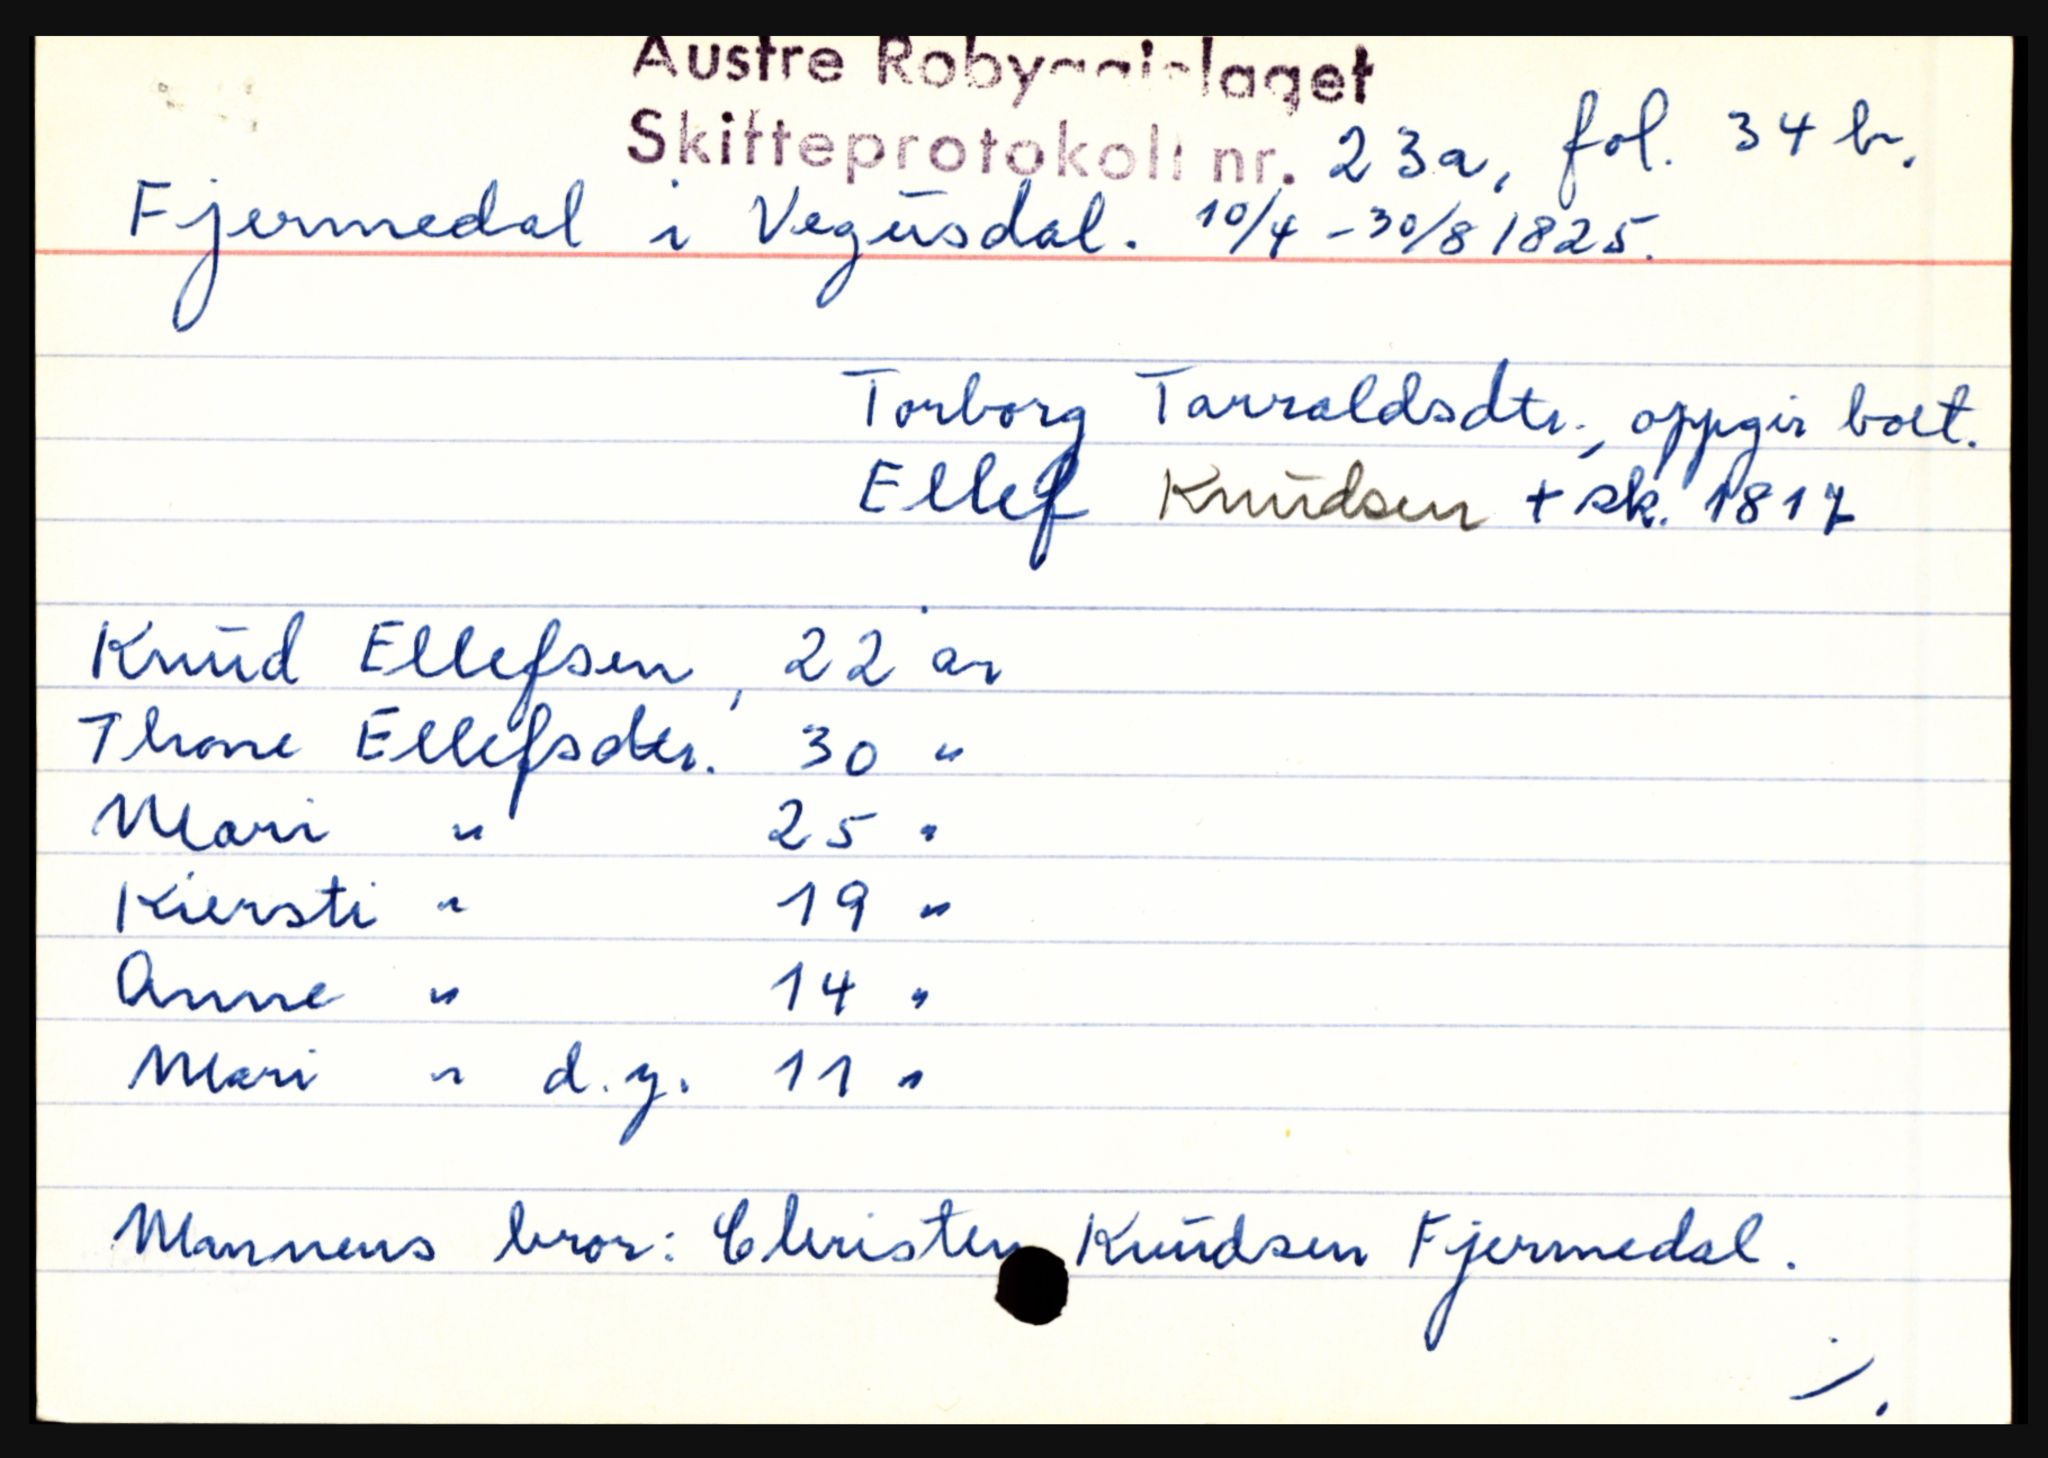 Austre Robyggjelaget
Skifteprotokoll nr. 23a, fol. 34 b.
Fjermedal i Vegusdal. 10/4 - 30/8 1825.
Torborg Tarraldsdtr., oppgir boet.
Ellef Knudsen + sk. 1817
Knud Ellefsen, 22 år
Thone Ellefsdtr. 30 "
Mari " 25 "
Kiersti " 19 "
Anne " 14 "
Mari " d.y. 11 "
Mannens bror: Christen Knudsen Fjermedal.